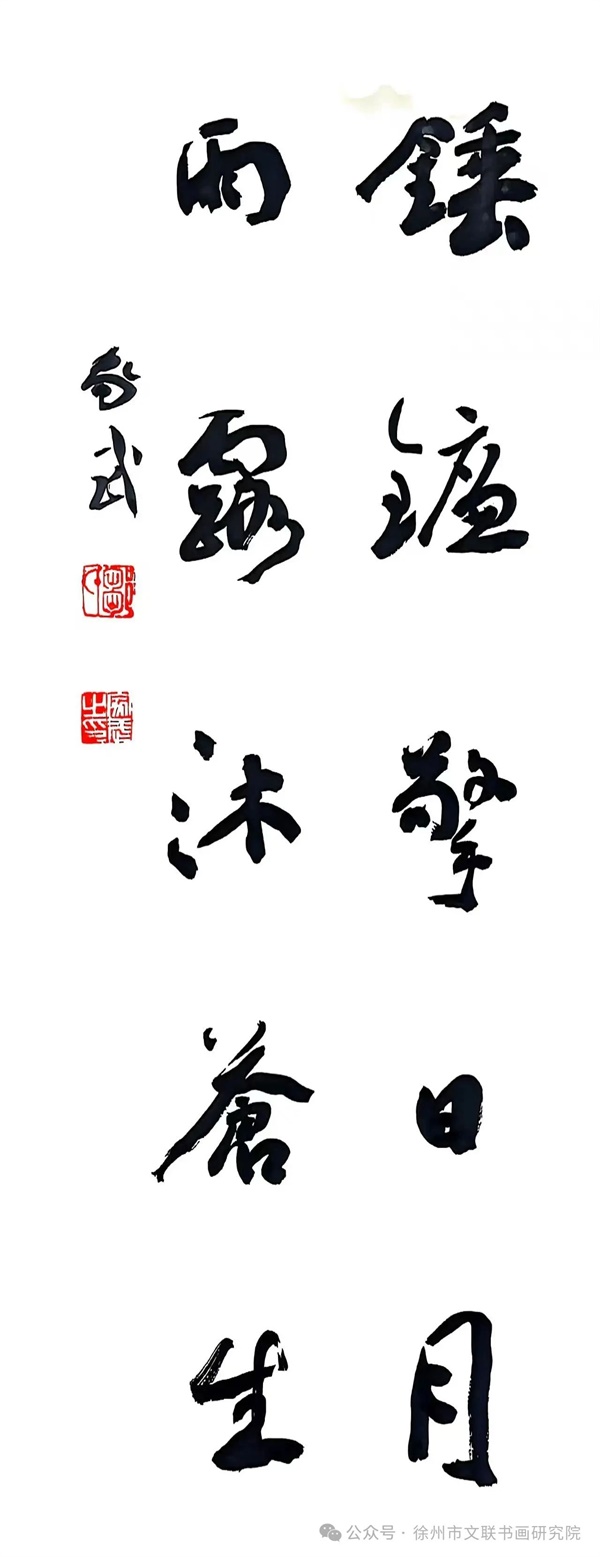 錘鐮擎日月
雨露沐蒼生
公众号 · 徐州市文联书画研究院